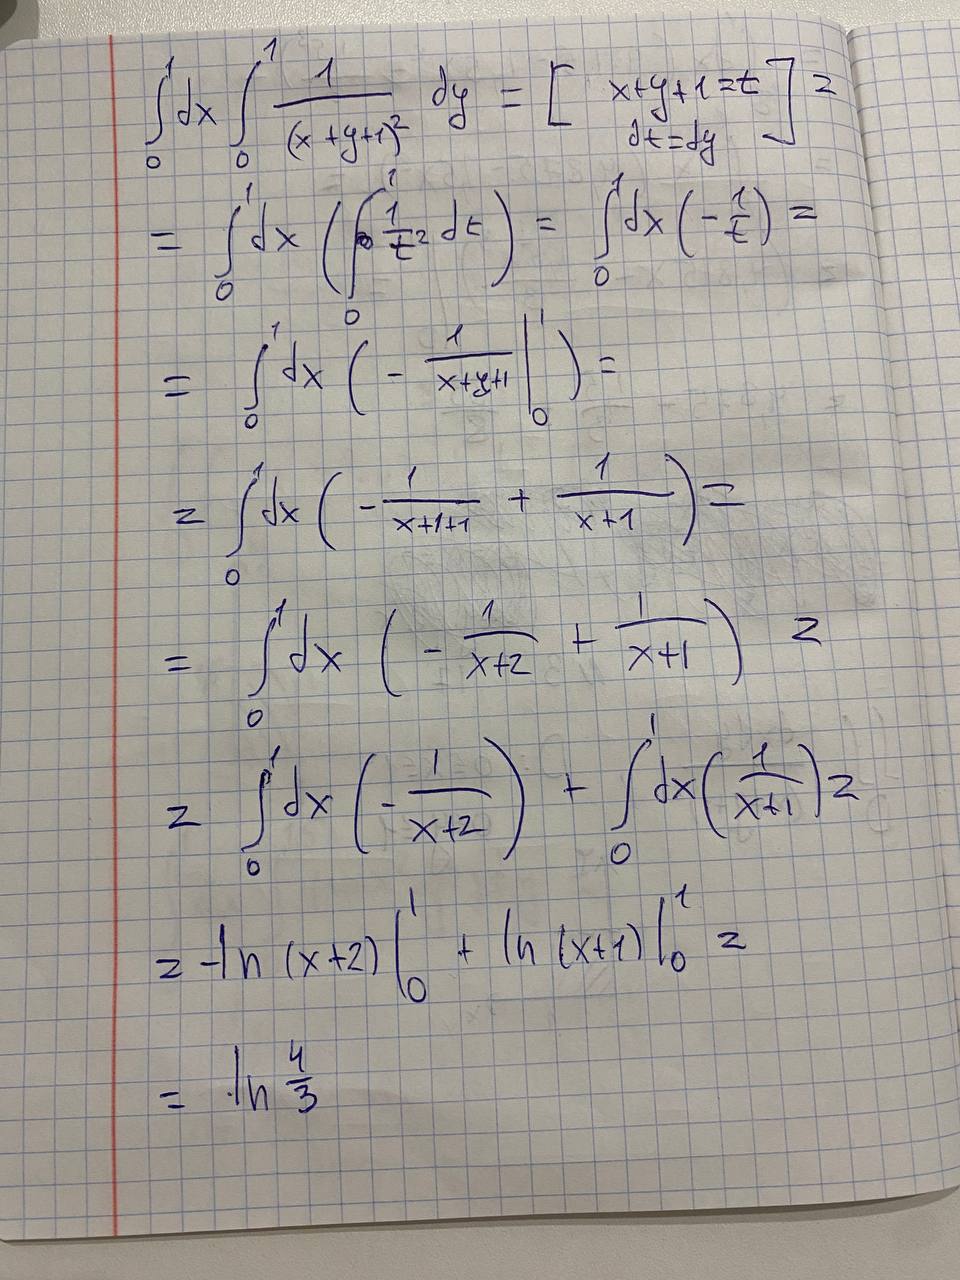 ∫₀¹ dx ∫₀¹ 1/(x+y+1)² dy = [ x+y+1=t
dt=dy ] =
= ∫₀¹ dx ( ∫₀¹ 1/t² dt ) = ∫₀¹ dx (- 1/t) =
= ∫₀¹ dx ( - 1/(x+y+1) |₀¹ ) =
= ∫₀¹ dx ( - 1/(x+1+1) + 1/(x+1) ) =
= ∫₀¹ dx ( - 1/(x+2) + 1/(x+1) ) =
= ∫₀¹ dx ( - 1/(x+2) ) + ∫₀¹ dx ( 1/(x+1) ) =
= -ln (x+2) |₀¹ + ln (x+1) |₀¹ =
= ln 4/3